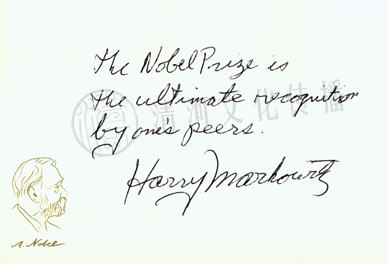 The Nobel Prize is
the ultimate recognition
by one's peers.
Harry Markowitz
A. Nobel
清润文化传播